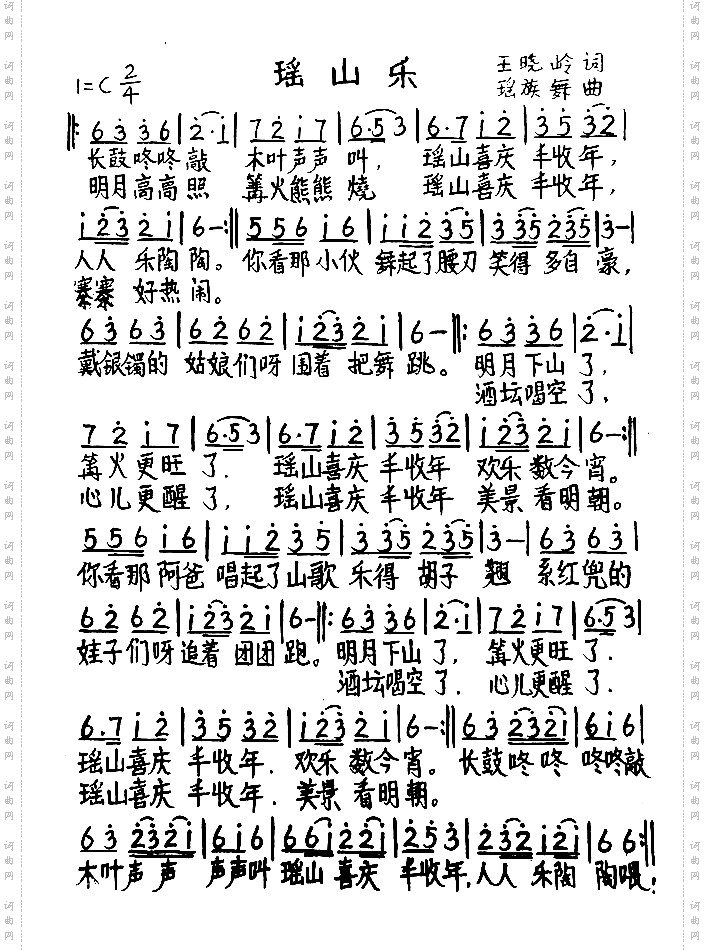 瑶山乐
1=C 2/4
王晓岭 词
瑶族舞 曲
‖: 6 3̇ 3̇ 6 | 2̇· i | 7 2̇ i 7 | 6·5 3 | 6·7 i 2̇ | 3̇ 5̇ 3̇2̇ |
长鼓咚咚敲 木叶声声 叫， 瑶山喜庆 丰收年，
明月高高照 篝火熊熊 燒 瑶山喜庆 丰收年，
i 2̇3̇ 2̇ i | 6 - :‖ 5 5 6 i 6 | i i 2̇ 3̇5̇ | 3̇ 3̇5̇ 2̇3̇5̇ | 3̇ - |
人人 乐陶 陶。你看那 小伙 舞起了腰刀 笑得 多自 豪，
寨寨 好热 闹。
6 3̇ 6 3̇ | 6 2̇ 6 2̇ | i 2̇3̇ 2̇ i | 6 - ‖: 6 3̇ 3̇ 6 | 2̇· i |
戴银镯的 姑娘们呀 围着 把舞 跳。 明月下山 了，
酒坛喝空 了，
7 2̇ i 7 | 6·5 3 | 6·7 i 2̇ | 3̇ 5̇ 3̇2̇ | i 2̇3̇ 2̇ i | 6 - :‖
篝火更旺 了． 瑶山喜庆 丰收年 欢乐 数今 宵。
心儿更醒 了， 瑶山喜庆 丰收年 美景 看明 朝。
5 5 6 i 6 | i i 2̇ 3̇ 5̇ | 3̇ 3̇5̇ 2̇ 3̇5̇ | 3̇ - | 6 3̇ 6 3̇ |
你看那 阿爸 唱起了山歌 乐得 胡子 翘 系红兜的
6 2̇ 6 2̇ | i 2̇3̇ 2̇ i | 6 - ‖: 6 3̇ 3̇ 6 | 2̇· i | 7 2̇ i 7 | 6·5 3 |
娃子们呀 追着 团团 跑。明月下山 了， 篝火更旺 了．
酒坛喝空 了． 心儿更醒 了．
6·7 i 2̇ | 3̇ 5̇ 3̇2̇ | i 2̇3̇ 2̇ i | 6 - :‖ 6 3̇ 2̇3̇2̇i | 6 i 6 |
瑶山喜庆 丰收年． 欢乐 数今 宵。 长鼓咚 咚 咚咚敲
瑶山喜庆 丰收年． 美景 看明 朝。
6 3̇ 2̇3̇2̇i | 6 i 6 | 6 6 i 2̇2̇i | 2̇ 5̇ 3̇ | 2̇3̇2̇ i2̇i | 6 6 :‖
木叶声 声 声声叫 瑶山 喜庆 丰收年，人人 乐陶 陶喂！
词曲网